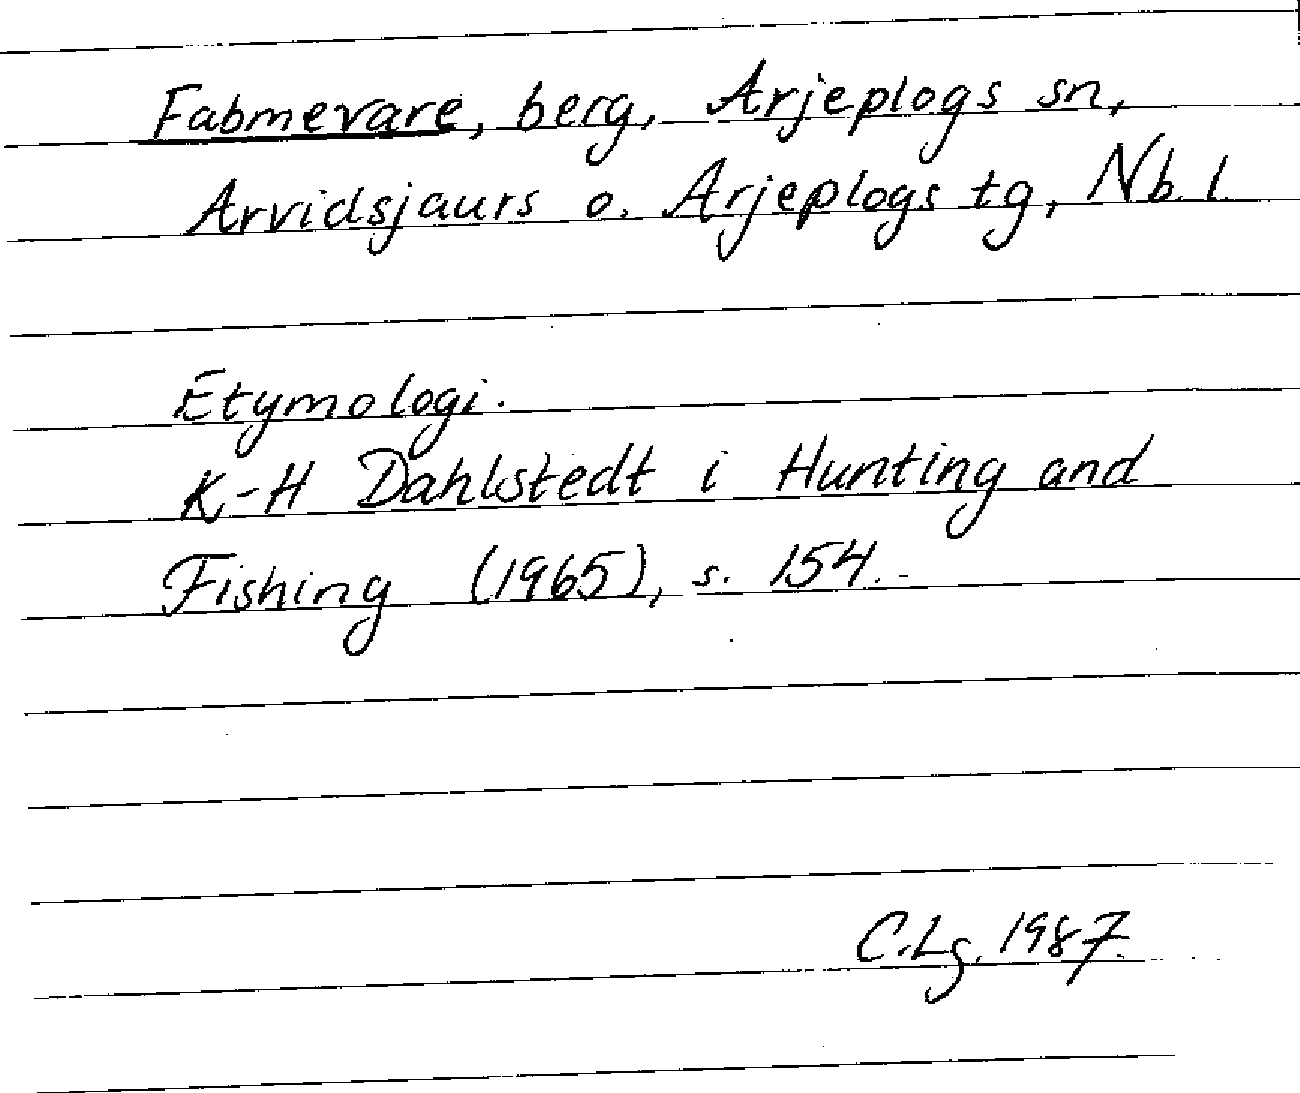 Fabmevare, berg, Arjeplogs sn,
Arvidsjaurs o. Arjeplogs tg, Nb. l.
Etymologi.
K-H Dahlstedt i Hunting and
Fishing (1965), s. 154.
C.Lg. 1987.